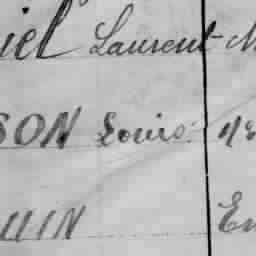 iel Laurent M
SON Louis
UIN En